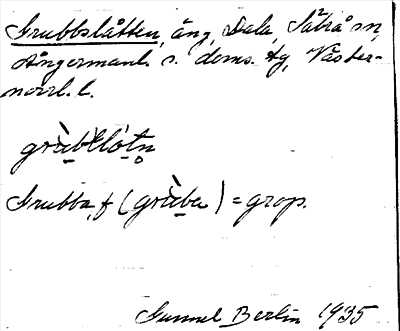 Grubbslåtten, äng, Dala, Såbrå sn,
Ångermanl. s. doms. hg, Väster-
norrl. l.
grùb`slo̱tn̥
Grubba, f (grùba) = grop.
Gunnel Berlin 1935